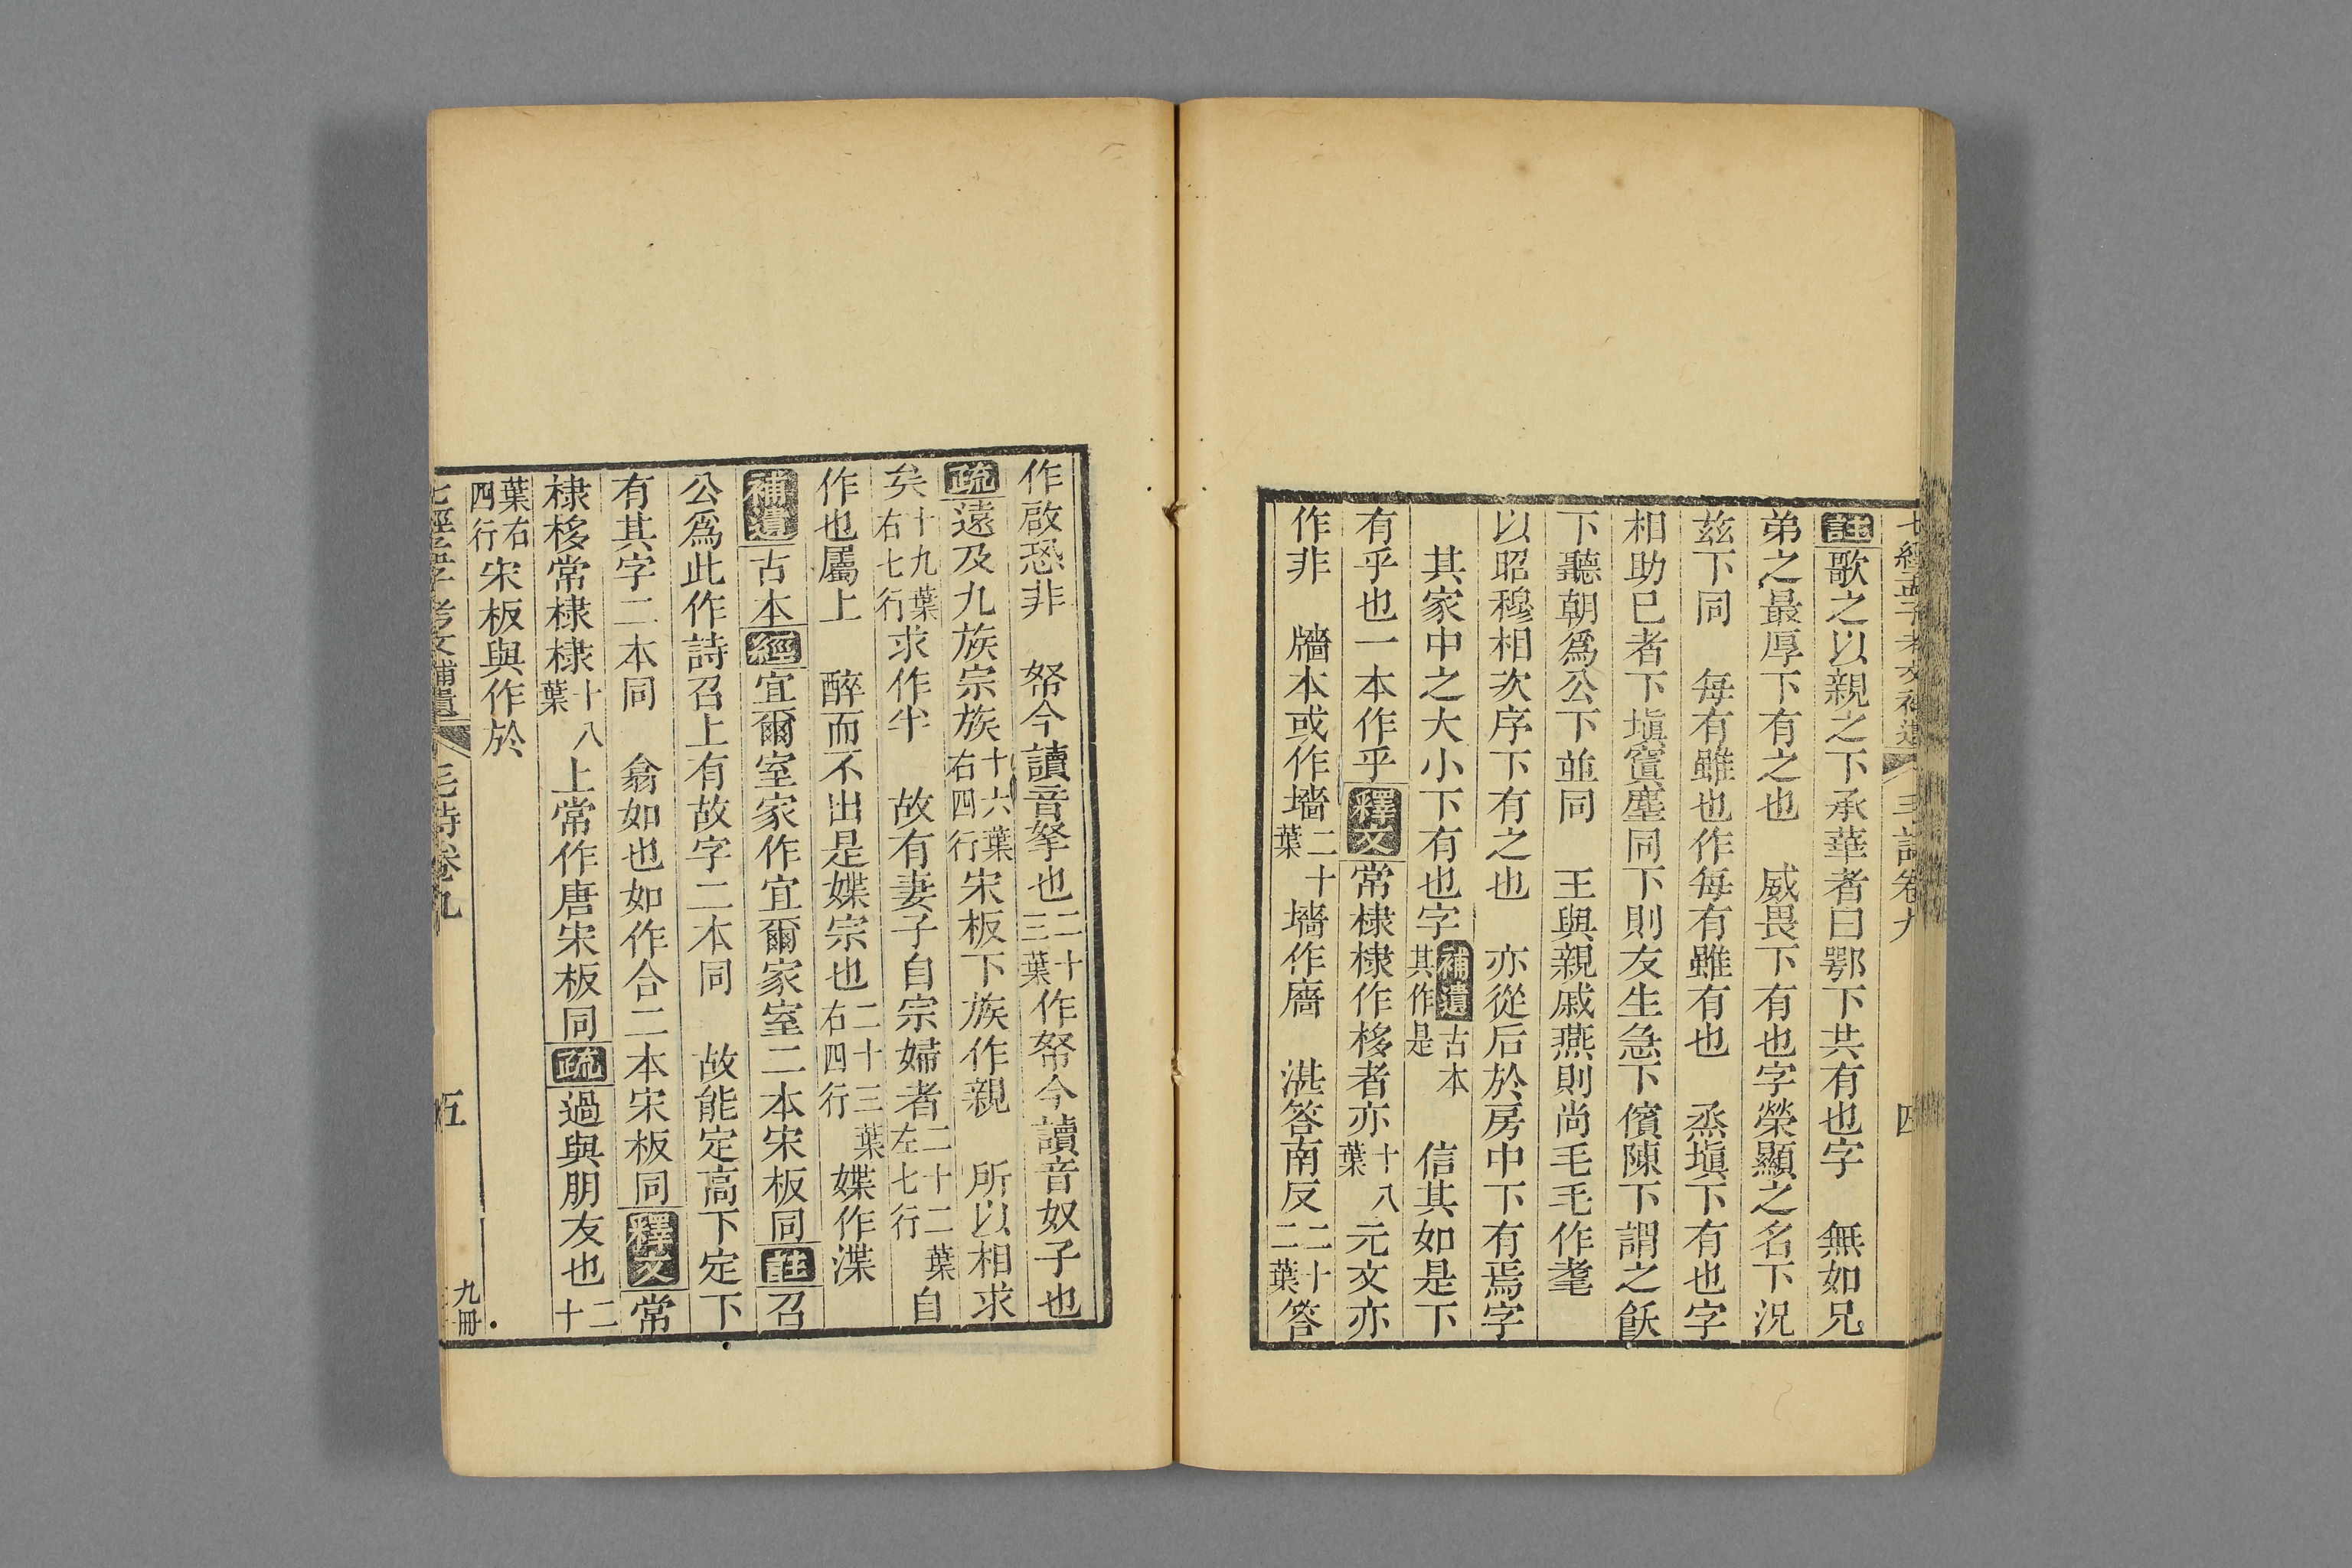 七經孟子考文補遺 毛詩卷九 四
註歌之以親之下承華者曰鄂下共有也字 無如兄
弟之最厚下有之也 威畏下有也字榮顯之名下況
茲下同 每有雖也作每有雖有也 烝塡下有也字
相助己者下塡窴塵同下則友生急下儐陳下謂之飫
下聽朝爲公下並同 王與親戚燕則尚毛毛作耄
以昭穆相次序下有之也 亦從后於房中下有焉字
其家中之大小下有也字補遺古本其作是 信其如是下
有乎也一本作乎釋文常棣棣作栘者亦十八葉元文亦
作非 牆本或作墻二十葉墻作廧 湛答南反二十二葉答
作啟恐非 帑今讀音孥也二十三葉作帑今讀音奴子也
疏遠及九族宗族十六葉右四行宋板下族作親 所以相求
矣十九葉右七行求作半 故有妻子自宗婦者二十二葉左七行自
作也屬上 醉而不出是媟宗也二十三葉右四行媟作渫
補遺古本經宜爾室家作宜爾家室二本宋板同註召
公爲此作詩召上有故字二本同 故能定高下定下
有其字二本同 翕如也如作合二本宋板同釋文常
棣栘常棣棣十八葉上常作唐宋板同疏過與朋友也二十
葉右四行宋板與作於
七經孟子考文補遺 毛詩卷九 五
九冊